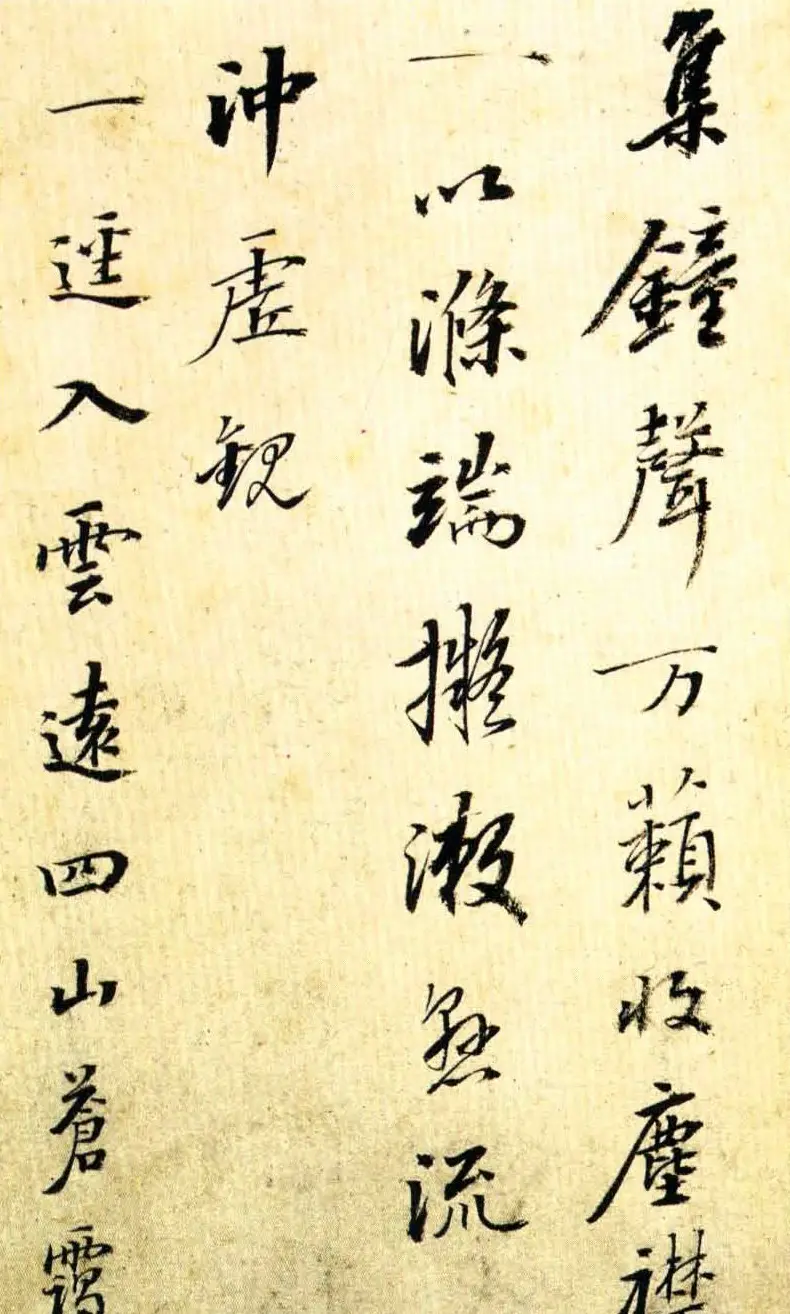 集鐘聲万藾收塵襟
一以滌端擬漱懸流
沖虛觀
一逕入雲遠四山蒼靄